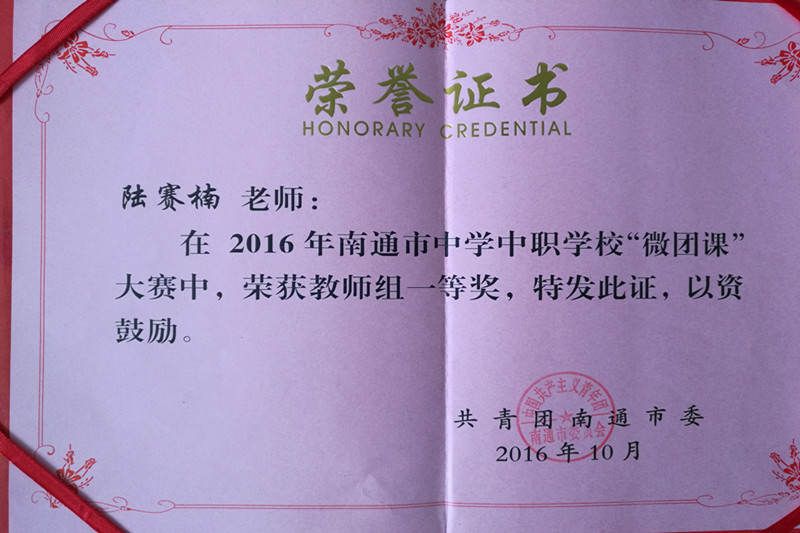 荣誉证书
HONORARY CREDENTIAL
陆赛楠 老师：
在 2016 年南通市中学中职学校“微团课”
大赛中，荣获教师组一等奖，特发此证，以资
鼓励。
中国共产主义青年团
南通市委员会
共青团南通市委
2016 年 10 月